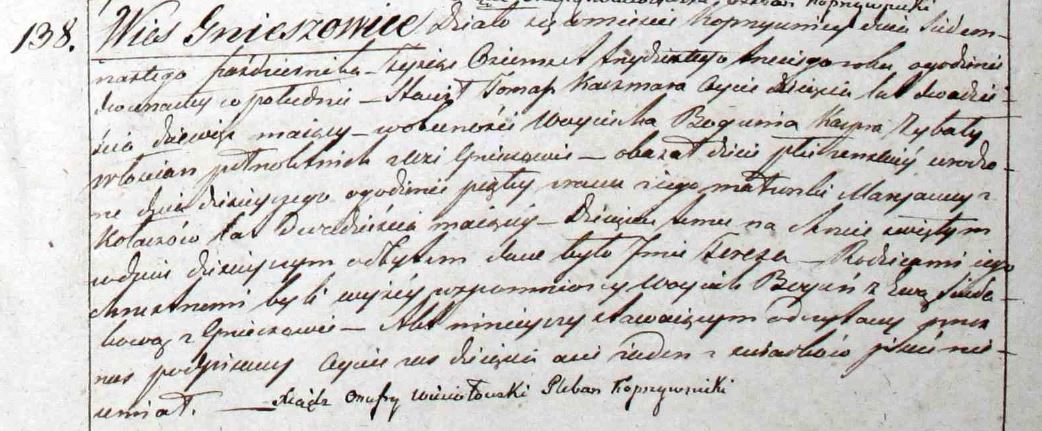 138. Wieś Gnieszowice Działo się w mieście Koprzywnicy dnia siedem-
nastego października Tysiąc Osiemset trzydziestego trzeciego roku o godzinie
dwunasty w południe – Stawił Tomasz Kaczmara Ojciec dziecięcia lat dwadzie-
ścia dziewięć maiący – w obecności Woyciecha Bogunia Kacpra Rybały
włościan pełnoletnich z wsi Gnieszowic – okazał dziecię płci żeńskiéy urodzo-
ne dnia dzisieyszego o godzinie piąty z rana z iego małżonki Maryanny z
Kołaczów lat Dwadzieścia maiący – Dziecięciu temu na Chrzcie świętym
w dniu dzisieyszym odbytem dane było Jmie Tereza – Rodzicami iego
chrzestnemi byli wyżéy wspomniony Woyciech Boguń z Ewą
bową z Gnieszowic – Akt ninieyszy stawaiącym odczytany przez
nas podpisany Oyciec zaś dziecięcia ani żaden z świadków pisać nie
umiał. – Xiądz Onufry Pleban Koprzywnicki